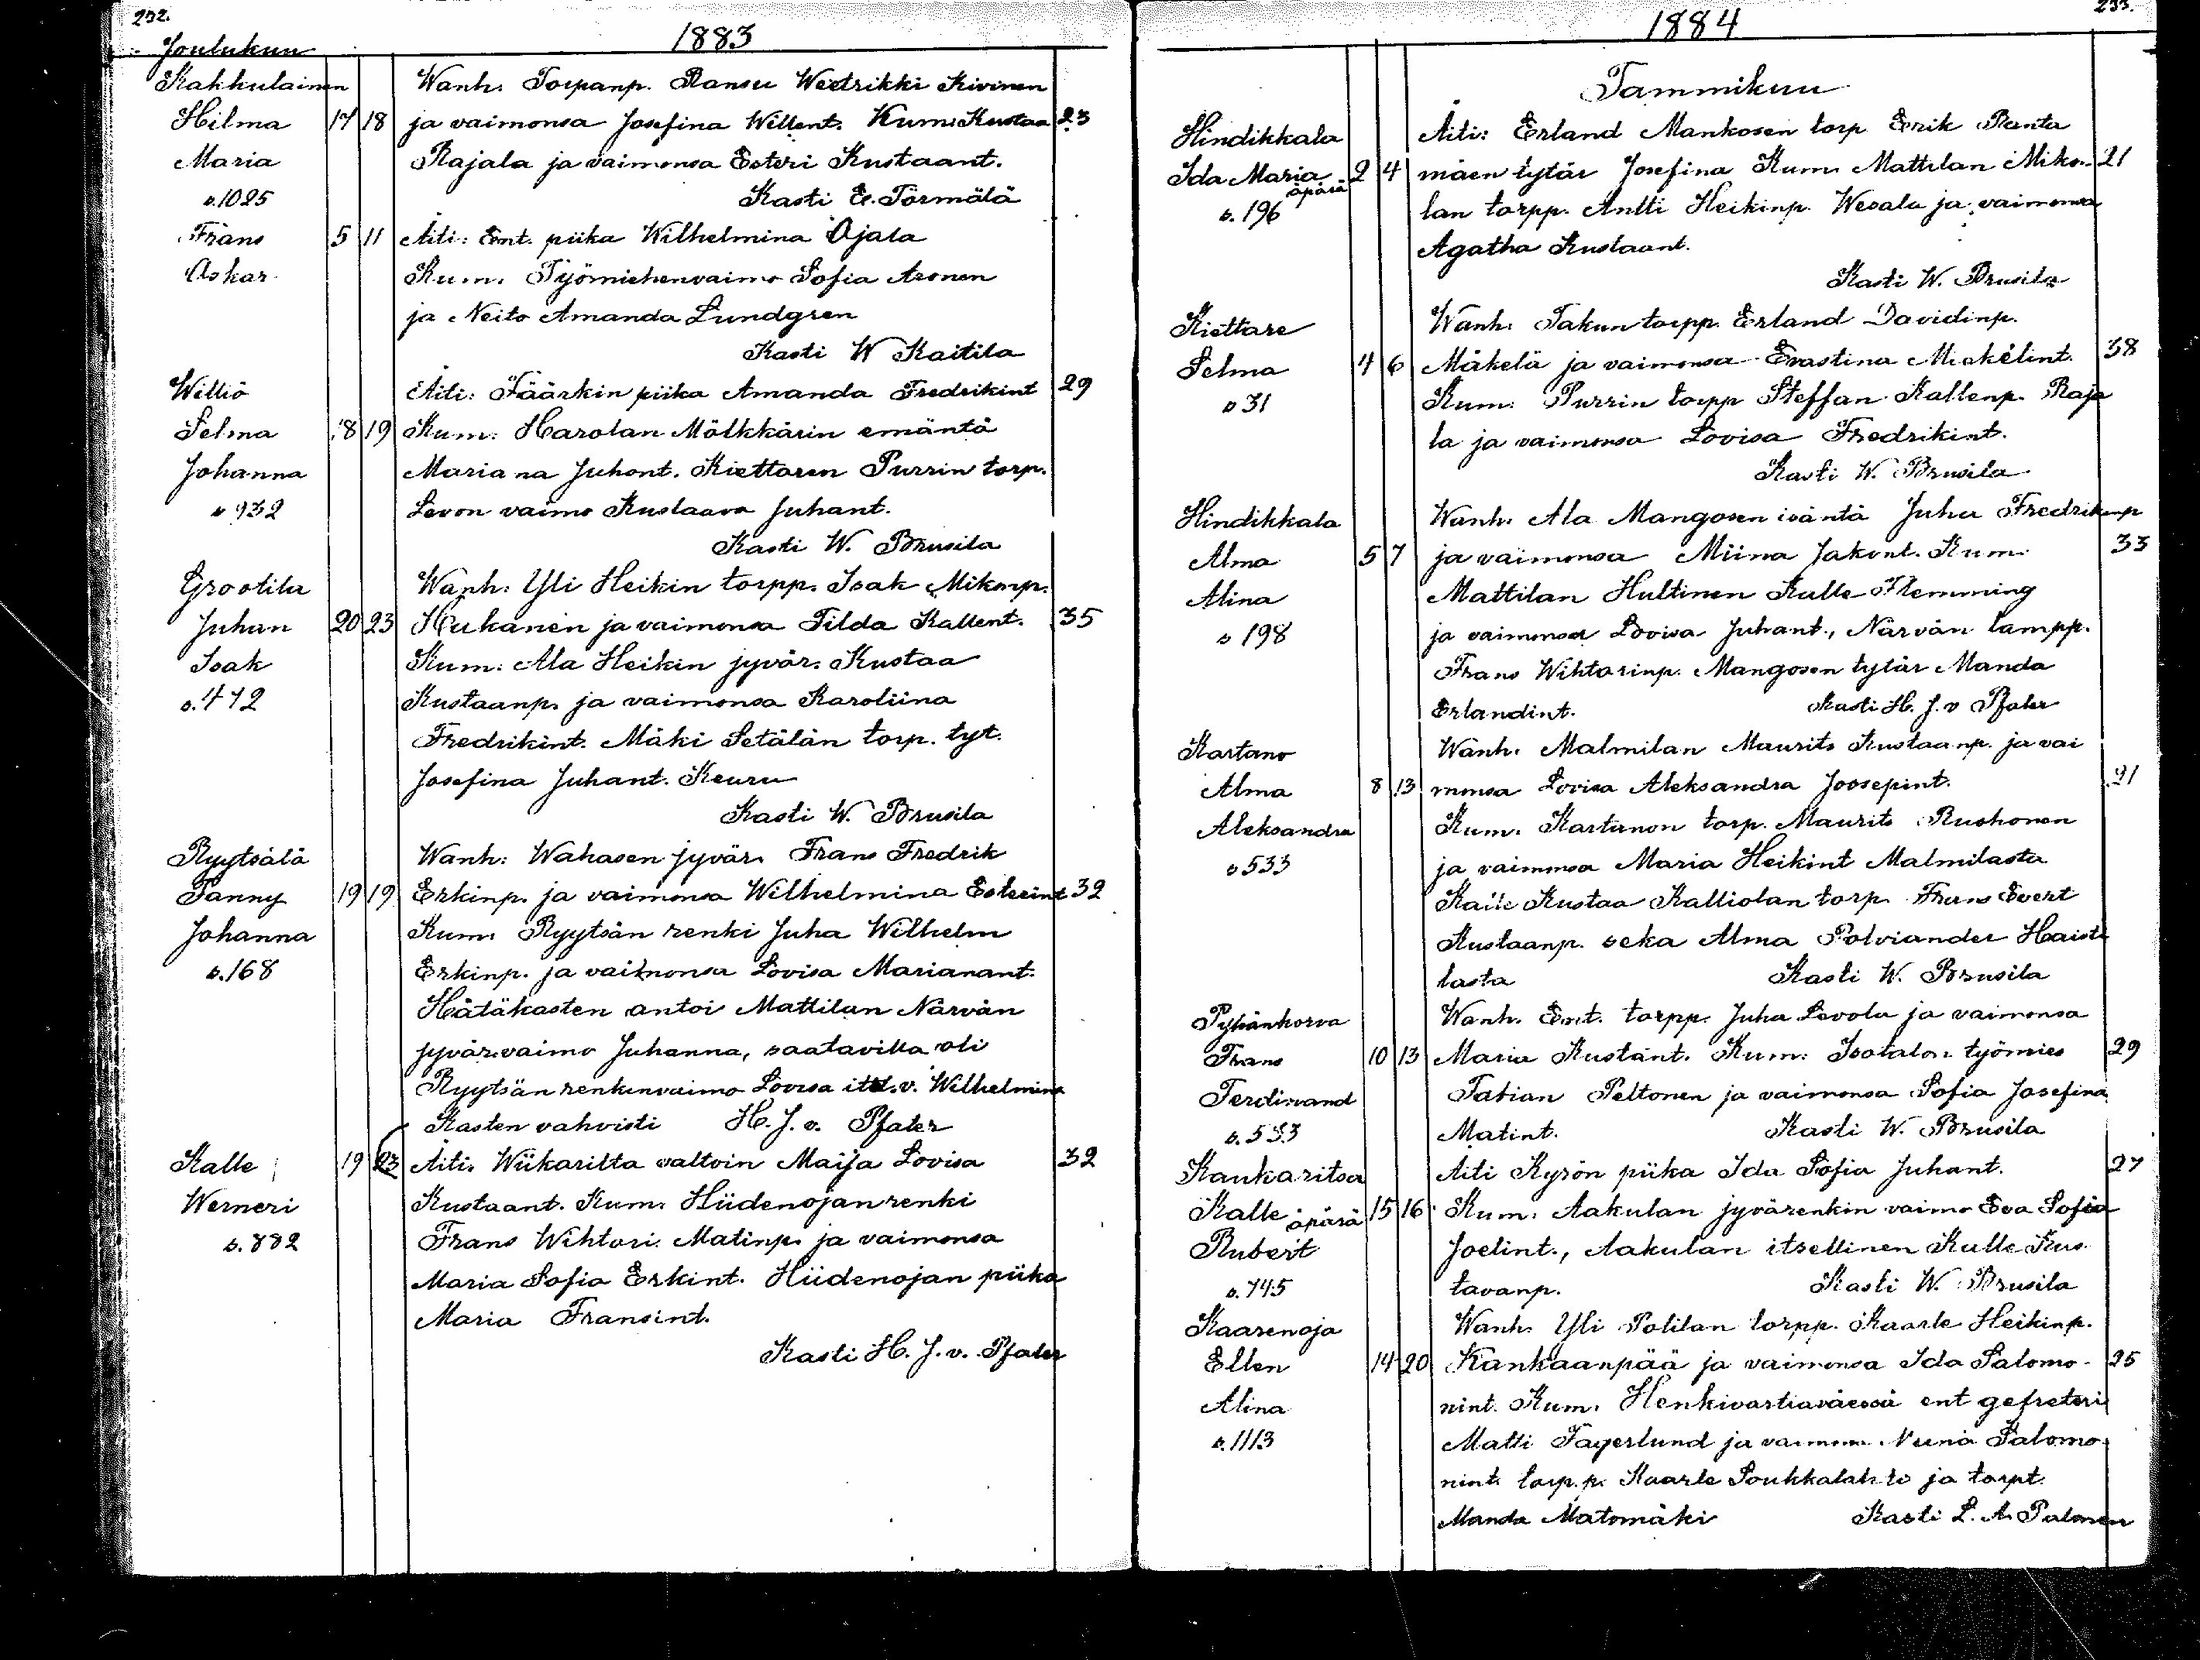 232.
1883
Joulukuu
Kakkulainen
Wanh. Torpanp. Ransu Weetrikki Kivinen
Hilma 17 18 ja vaimonsa Josefina Willent. Kum. Kustaa 23
Maria Rajala ja vaimonsa Esteri Kustaant.
s.1025 Kasti E. Törmälä
Frans 5 11 Äiti: Ent. piika Wilhelmina Ojala
Oskar Kum. Työmiehenvaimo Sofia Aronen
ja Neito Amanda Lundgren
Kasti W Kaitila
Williö Äiti: Fäärkin piika Amanda Fredrikint 29
Selma 18 19 Kum: Harolan Mölkkärin emäntä
Johanna Maria na Juhont. Kiettaren Purrin torp.
s 932 Levon vaimo Kustaava Juhant.
Kasti W. Brusila
Grootila Wanh: Yli Heikin torpp. Isak Mikonp.
Juhan 20 23 Hukanen ja vaimonsa Tilda Kallent. 35
Isak Kum: Ala Heikin jyvär. Kustaa
s.472 Kustaanp. ja vaimonsa Karoliina
Fredrikint. Mäki Setälän torp. tyt.
Josefina Juhant. Keuru
Kasti W. Brusila
Ryytsälä Wanh: Wahasen jyvär. Frans Fredrik
Fanny 19 19 Erkinp. ja vaimonsa Wilhelmina Esterint 32
Johanna Kum. Ryytsän renki Juha Wilhelm
s.168 Erkinp. ja vaimonsa Lovisa Marianant.
Hätäkasten antoi Mattilan Närvän
jyvär.vaimo Juhanna, saatavilla oli
Ryytsän renkinvaimo Lovisa its.v. Wilhelmina
Kasten vahvisti H. J. v. Pfaler
Kalle 19 23 Äiti. Wiikarilta valtoin Maija Lovisa 32
Werneri Kustaant. Kum. Hiidenojan renki
s.882 Frans Wihtori Matinp. ja vaimonsa
Maria Sofia Erkint. Hiidenojan piika
Maria Fransint.
Kasti H. J. v. Pfaler
233.
1884
Tammikuu
Hindikkala Äiti: Erland Mankosen torp Erik Ranta
Ida Maria äpärä 2 4 mäen tytär Josefina Kum. Mattilan Miko- 21
s. 196 lan torpp. Antti Heikinp. Wesala ja vaimonsa
Agatha Kustaant.
Kasti W. Brusila
Kiettare Wanh. Takun torpp. Erland Davidinp.
Selma 4 6 Mäkelä ja vaimonsa Evastina Mickelint. 38
s 31 Kum: Purrin torpp Steffan Kallenp. Raja
la ja vaimonsa Lovisa Fredrikint.
Kasti W. Brusila
Hindikkala Wanh. Ala Mangosen isäntä Juha Fredrikinp
Alma 5 7 ja vaimonsa Miina Jakont. Kum. 33
Alina Mattilan Hultinen Kalle Flemming
s 198 ja vaimonsa Lovisa Juhant., Närvän lampp.
Frans Wihtorinp. Mangosen tytär Manda
Erlandint. Kasti H. J. v Pfaler
Kartano Wanh. Malmilan Maurits Kustaanp. ja vai
Alma 8 13 monsa Lovisa Aleksandra Joosepint. 21
Aleksandra Kum. Kartanon torp. Maurits Ruohonen
s 533 ja vaimonsa Maria Heikint Malmilasta
Kalle Kustaa Kalliolan torp. Frans Evert
Kustaanp. seka Alma Polviander Haisti
lasta Kasti W. Brusila
Pyhänkorva Wanh. Ent. torpp. Juha Levola ja vaimonsa
Frans 10 13 Maria Kustant. Kum: Isotalon työmies 29
Ferdinand Fabian Peltonen ja vaimonsa Sofia Josefina
s. 533 Matint. Kasti W. Brusila
Kankaritsa Äiti Kyrön piika Ida Sofia Juhant. 27
Kalle äpärä 15 16 Kum. Aakulan jyvärenkin vaimo Eva Sofia
Rubert Joelint., Aakulan itsellinen Kalle Kus-
s. 745 tavanp. Kasti W. Brusila
Kaarenoja Wanh. Yli Polilan torpp. Kaarle Heikinp.
Ellen 14 20 Kankaanpää ja vaimonsa Ida Salomo- 25
Alina nint. Kum. Henkivartiaväessä ent gefreteri
s. 1113 Matti Fagerlund ja vaimon. Salomo
nint. torp.p. Kaarle Loukkalahti ja torpt.
Manda Matomäki Kasti L. A. Palmen